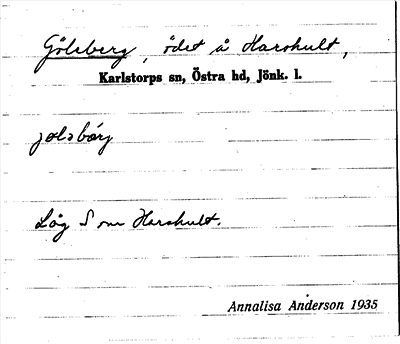 Gölsberg, ödet å Harshult,
Karlstorps sn, Östra hd, Jönk. l.
jølsbärj
Låg S om Harshult.
Annalisa Anderson 1935